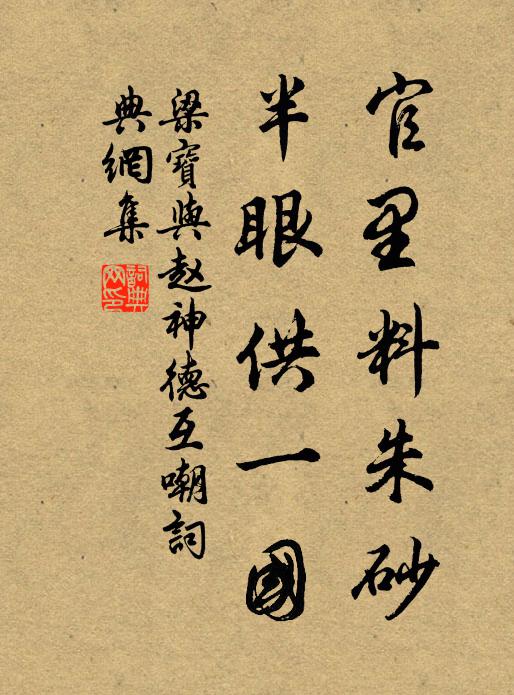 官里料朱砂
半眼供一國
梁寶與赵神德互嘲詞
典網集
詞典
网印